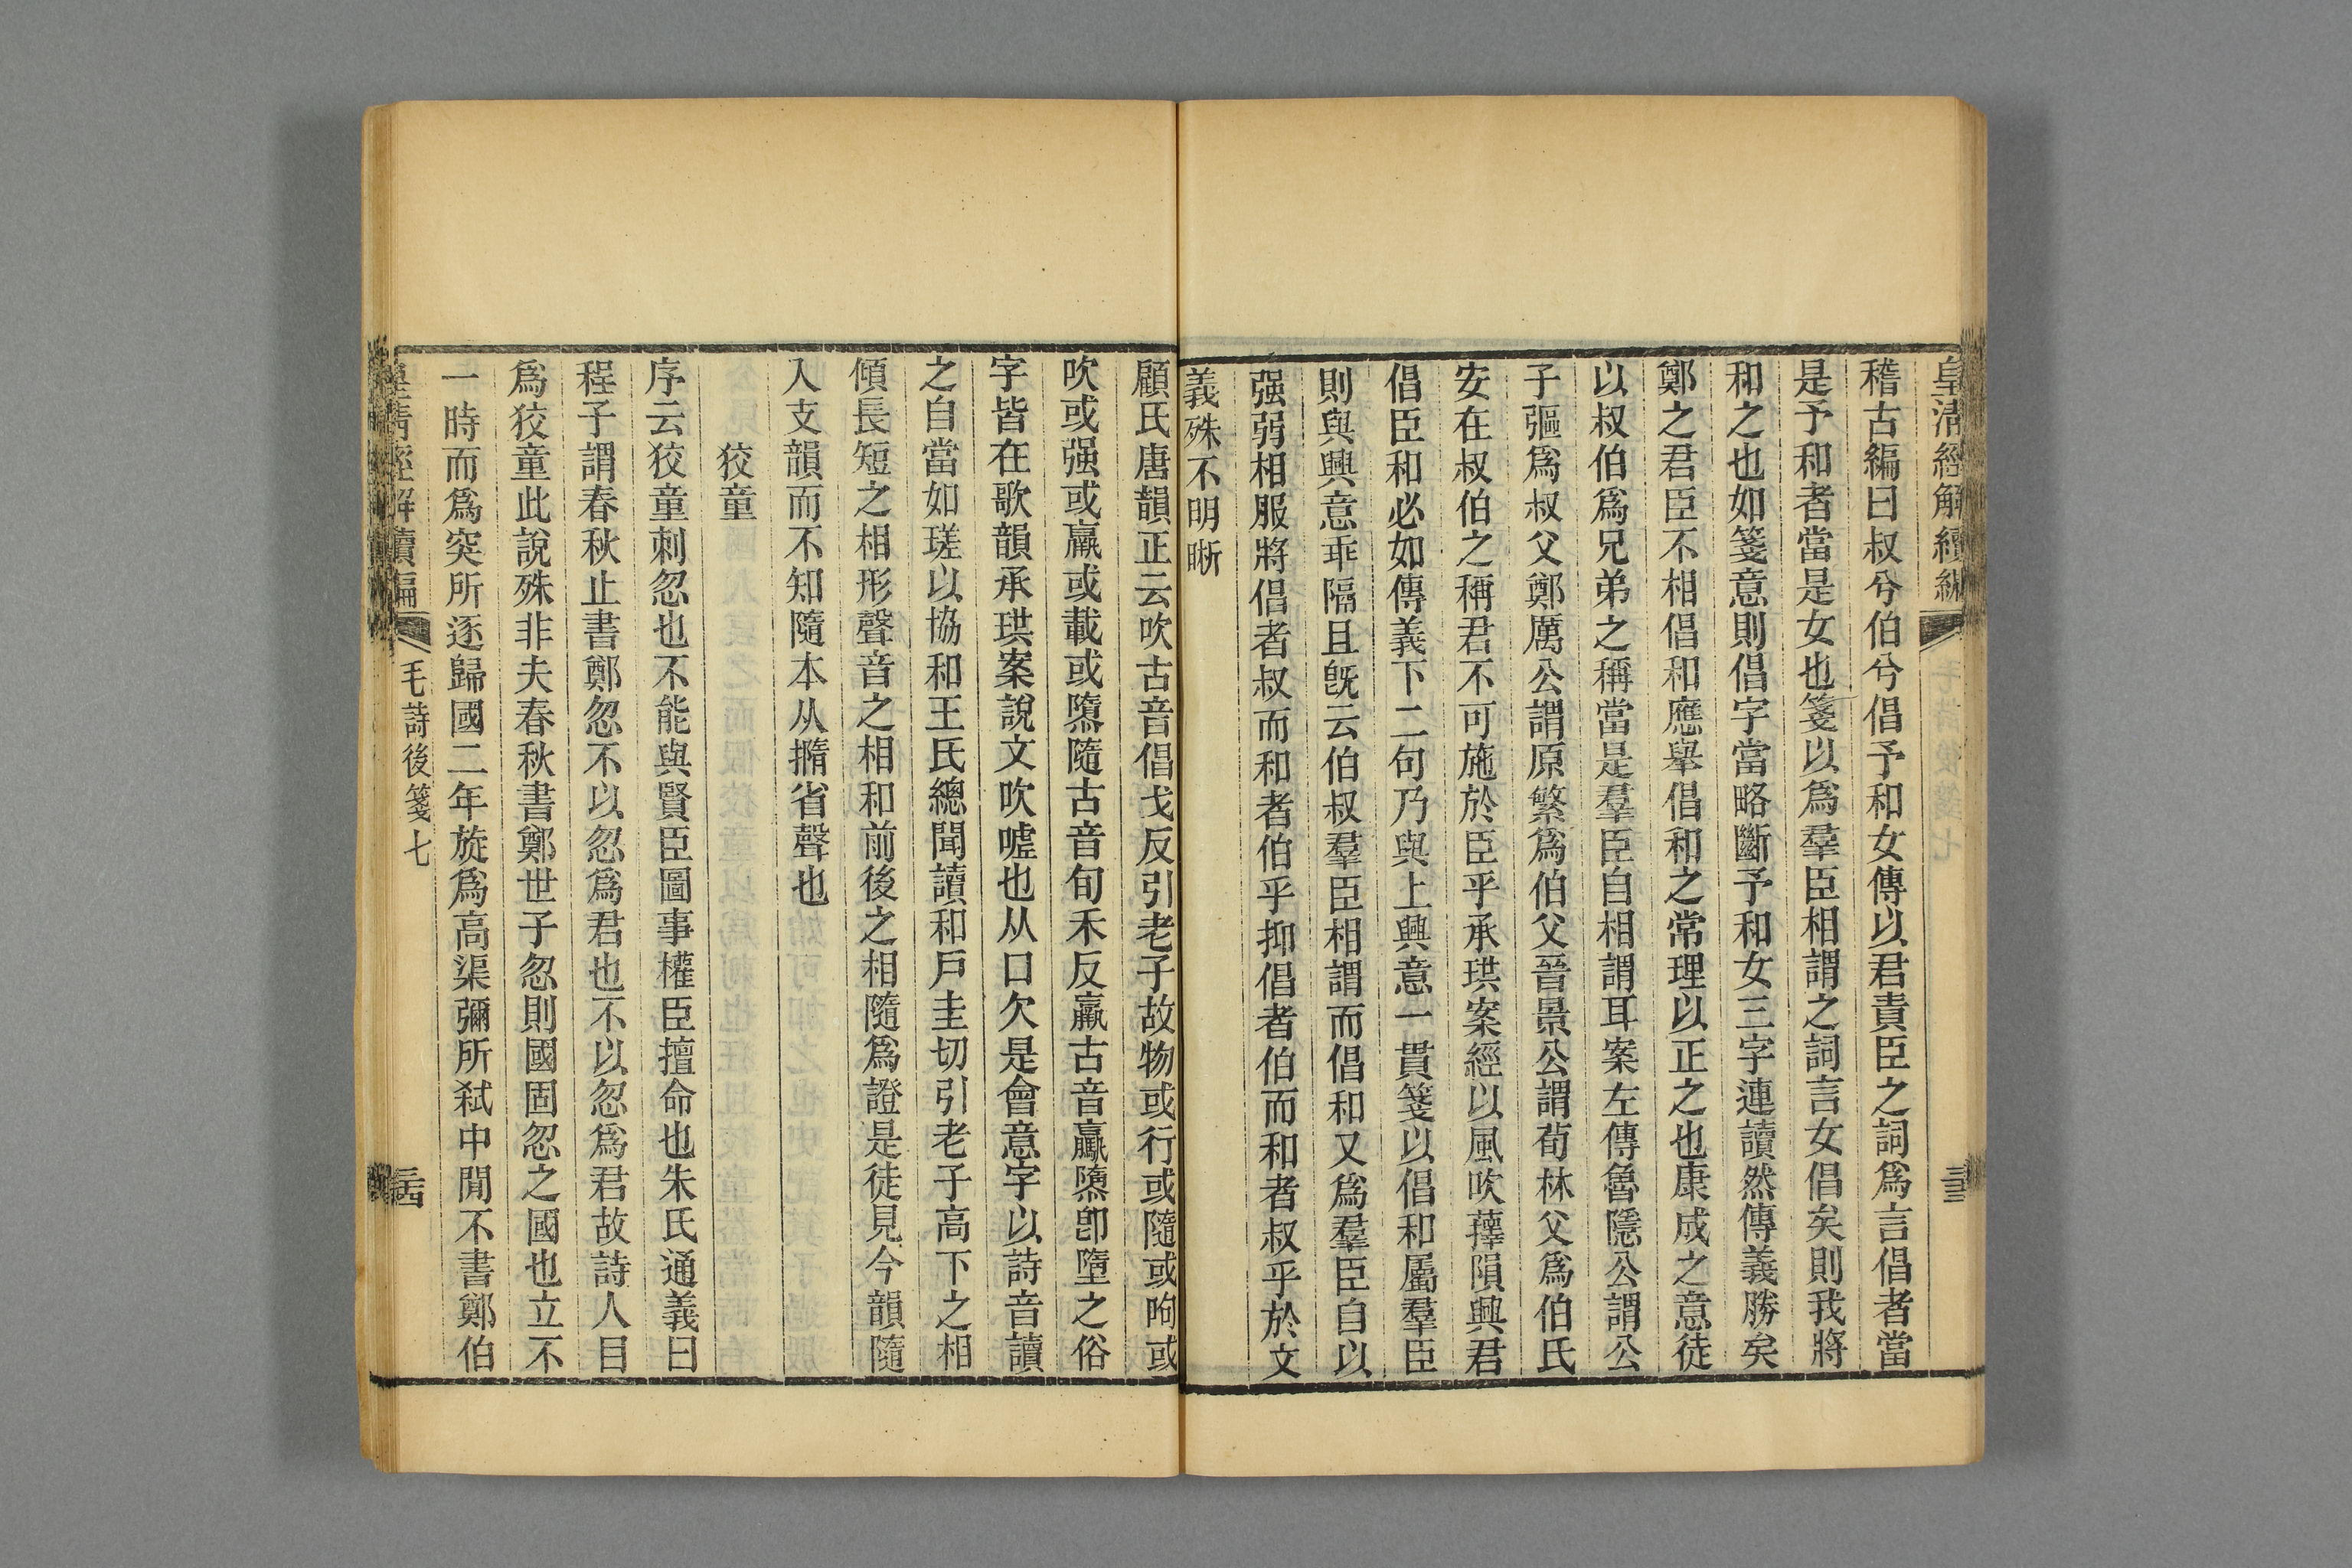 皇清經解續編
三三
稽古編曰叔兮伯兮倡予和女傳以君責臣之詞爲言倡者當
是予和者當是女也箋以爲羣臣相謂之詞言女倡矣則我將
和之也如箋意則倡字當略斷予和女三字連讀然傳義勝矣
鄭之君臣不相倡和應舉倡和之常理以正之也康成之意徒
以叔伯爲兄弟之稱當是羣臣自相謂耳案左傳魯隱公謂公
子彄爲叔父鄭厲公謂原繁爲伯父晉景公謂荀林父爲伯氏
安在叔伯之稱君不可施於臣乎承珙案經以風吹蘀隕興君
倡臣和必如傳義下二句乃與上興意一貫箋以倡和屬羣臣
則與興意乖隔且旣云伯叔羣臣相謂而倡和又爲羣臣自以
强弱相服將倡者叔而和者伯乎抑倡者伯而和者叔乎於文
義殊不明晰
顧氏唐韻正云吹古音倡戈反引老子故物或行或隨或呴或
吹或强或羸或載或隳隨古音旬禾反羸古音驘隳卽墮之俗
字皆在歌韻承珙案說文吹噓也从口欠是會意字以詩音讀
之自當如瑳以協和王氏總聞讀和戸圭切引老子高下之相
傾長短之相形聲音之相和前後之相隨爲證是徒見今韻隨
入支韻而不知隨本从㩻省聲也
狡童
序云狡童刺忽也不能與賢臣圖事權臣擅命也朱氏通義曰
程子謂春秋止書鄭忽不以忽爲君也不以忽爲君故詩人目
爲狡童此說殊非夫春秋書鄭世子忽則國固忽之國也立不
一時而爲突所逐歸國二年旋爲高渠彌所弑中閒不書鄭伯
皇清經解續編
毛詩後箋七
三四